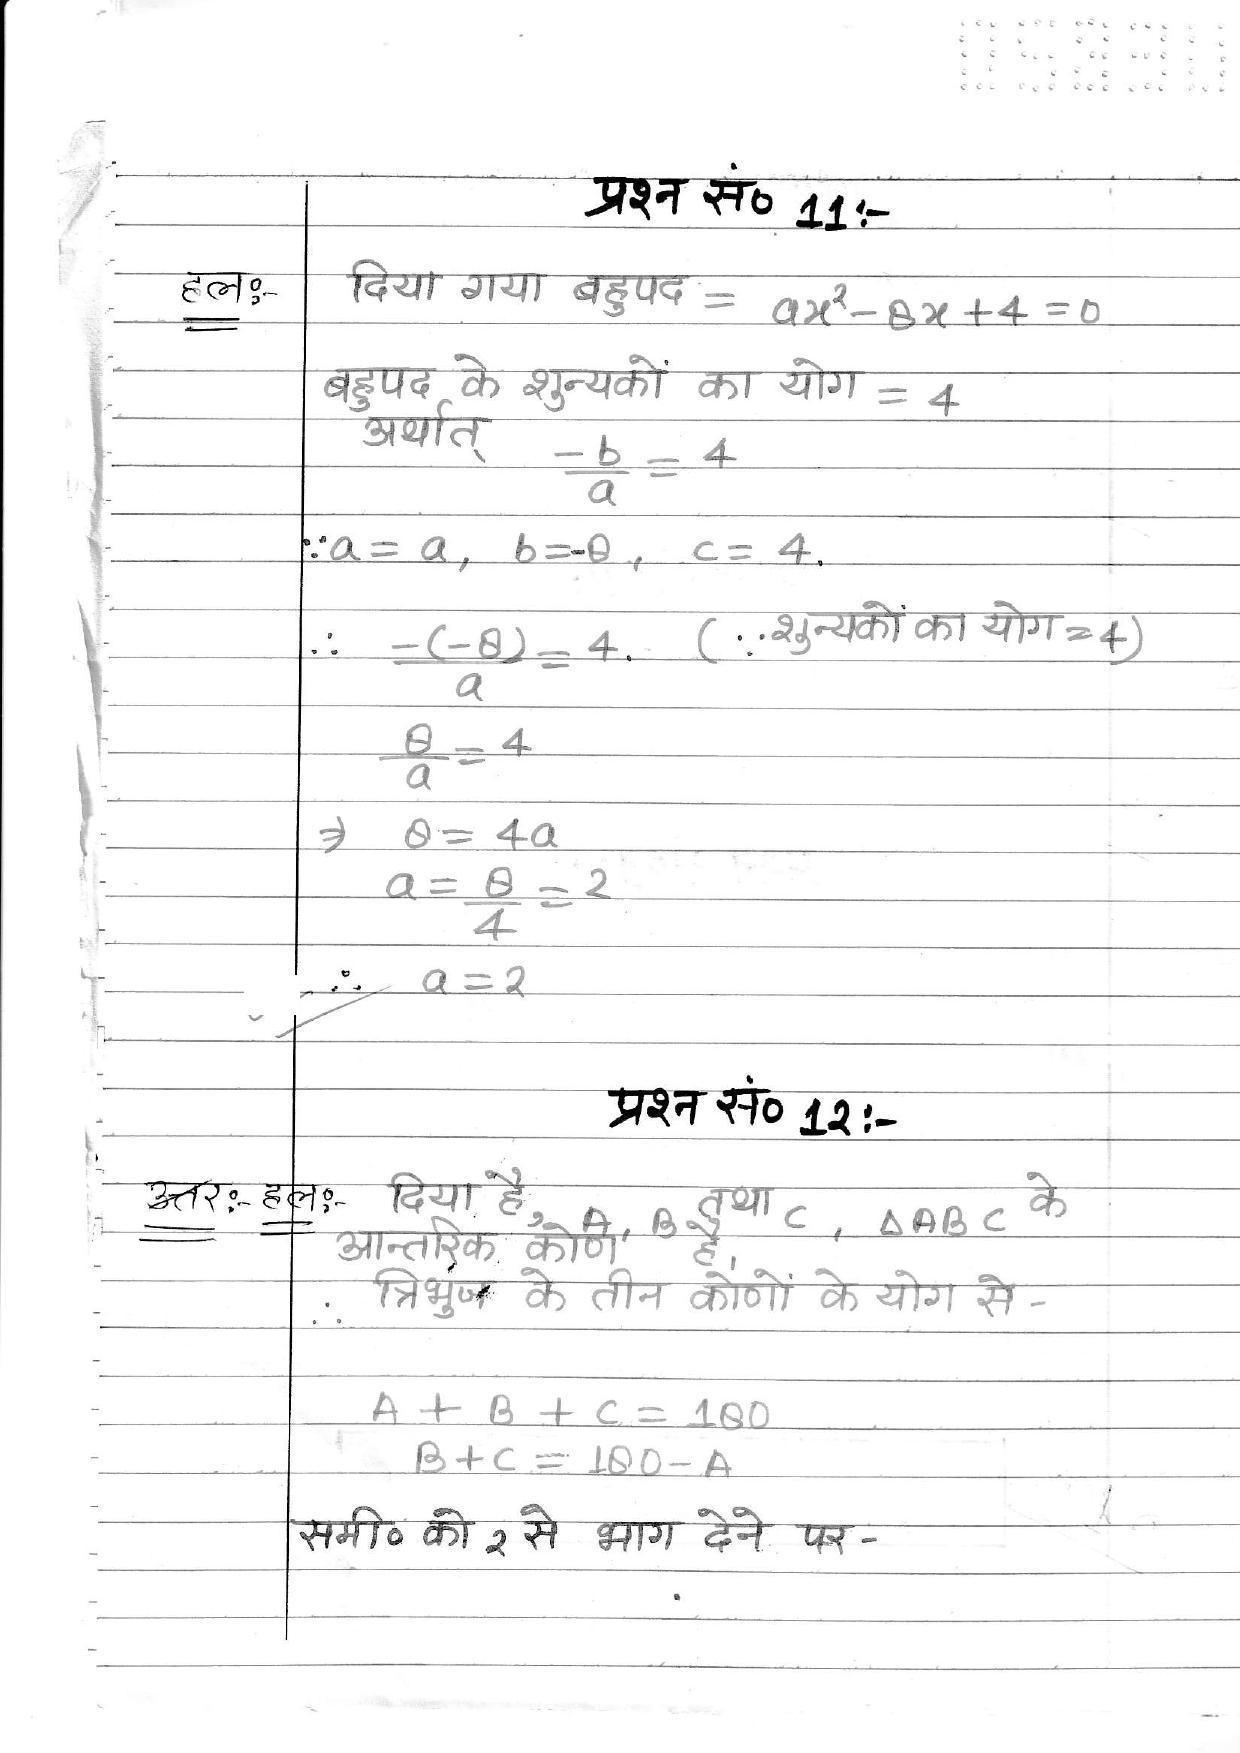 प्रश्न सं० 11:-
हल:- दिया गया बहुपद = ax² - 8x + 4 = 0
बहुपद के शुन्यकों का योग = 4
अर्थात् -b/a = 4
∵ a = a, b = -8, c = 4.
∴ -(-8)/a = 4. (∵ शुन्यकों का योग = 4)
8/a = 4
⇒ 8 = 4a
a = 8/4 = 2
∴ a = 2
प्रश्न सं० 12:-
उत्तर:- हल:- दिया है, A, B तथा C, ΔABC के
आन्तरिक कोण है,
∴ त्रिभुज के तीन कोणों के योग से -
A + B + C = 180
B + C = 180 - A
समी० को 2 से भाग देने पर -